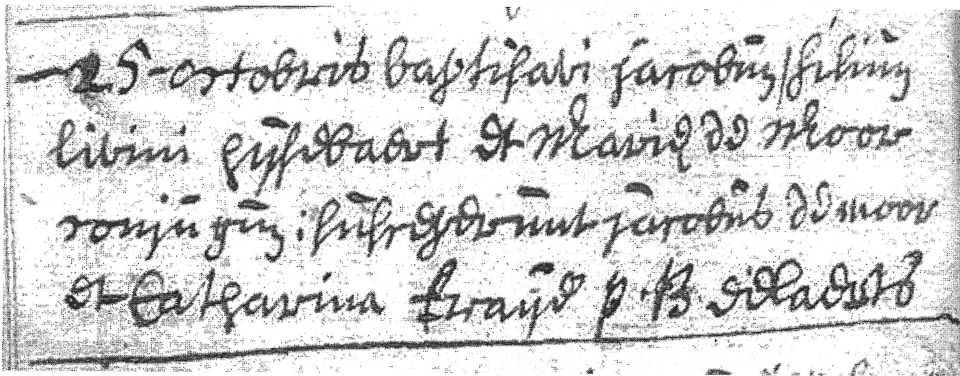 25 octobris baptisavi jacobum filium
livini hijsebaert et Mariæ de Moor
conjugum; susceperunt jacobus de moor
et Catharina p B